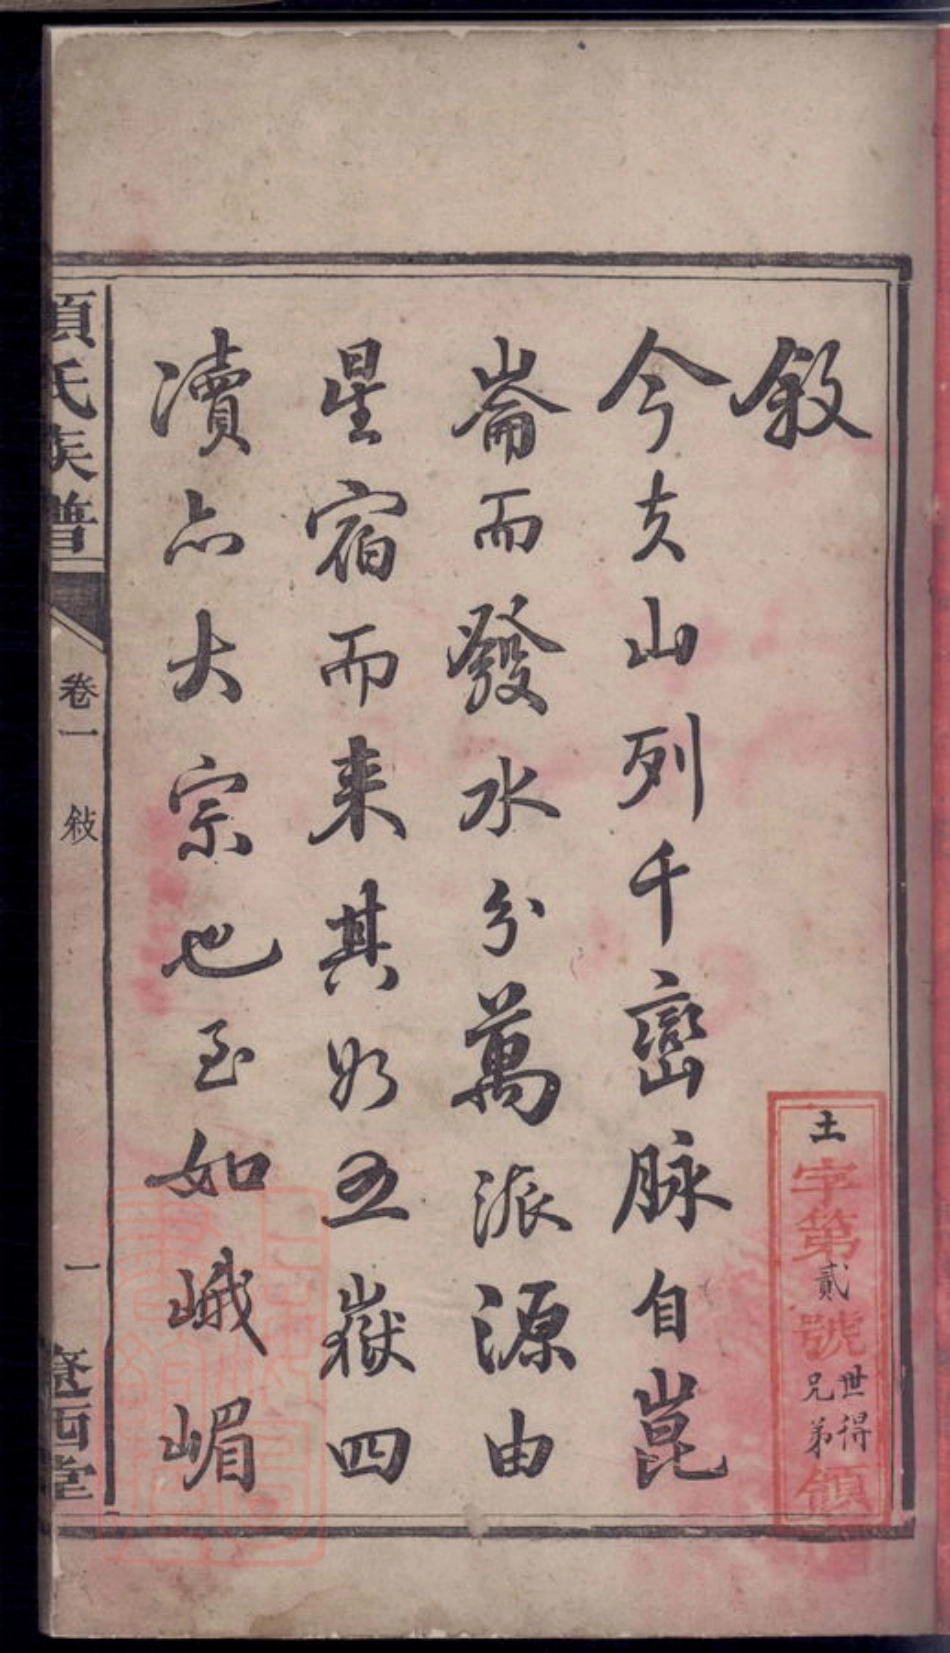 敘
土字第貳號世得兄弟領
今夫山列千巒脉自崑
崙而發水分萬派源由
星宿而来其五嶽四
瀆亦大宗也至如峨嵋
項氏族譜
卷一 敘
一
遼西堂